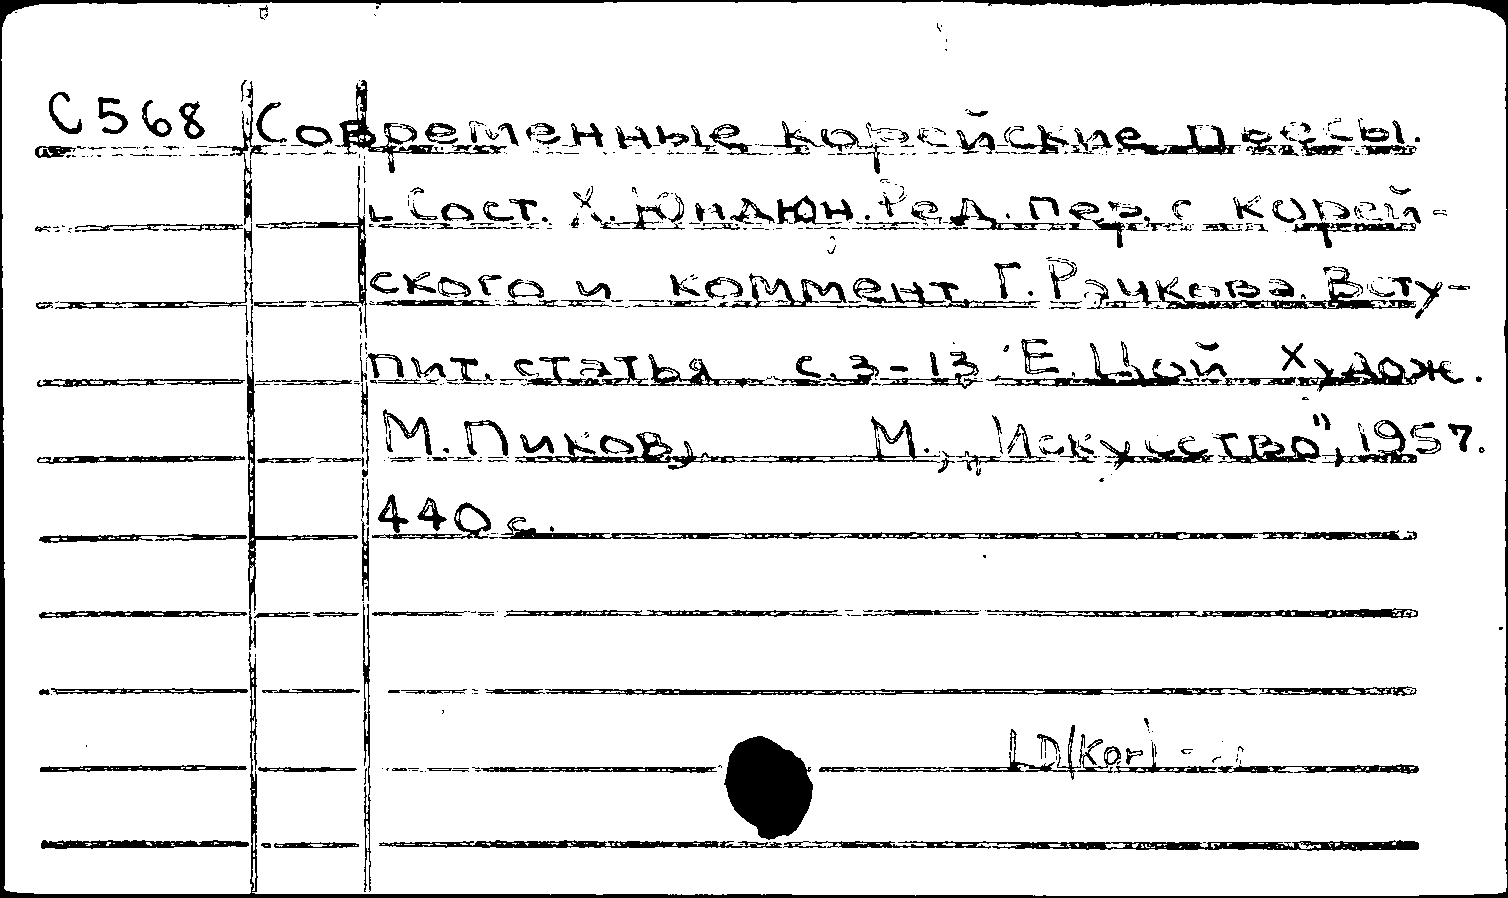 С568 Современные корейские пьесы.
Сост. Х. Юндюн. Ред. пер. с корей-
ского и коммент. Г. Рачкова. Всту-
пит. статья с. 3-13 Е. Цой Худож.
М. Пиков, М., „Искусство", 1957.
440 с.
LD(Kor)